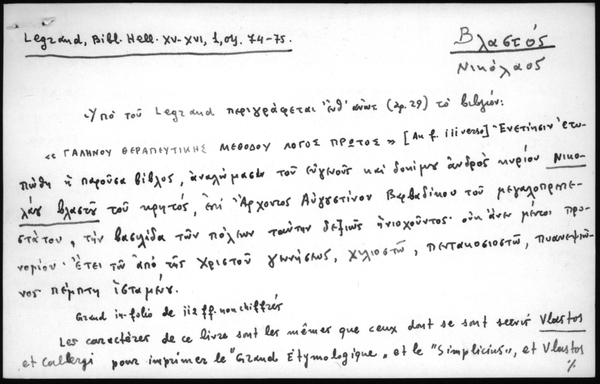 Legrand, Bibl. Hell. XV-XVI, 1, σσ. 74-75.
Βλαστός
Νικόλαος
Ὑπὸ τοῦ Legrand περιγράφεται ὑπ' ἀριθ. (ἀρ. 29) τὸ βιβλίον:
« ΓΑΛΗΝΟΥ ΘΕΡΑΠΕΥΤΙΚΗΣ ΜΕΘΟΔΟΥ ΛΟΓΟΣ ΠΡΩΤΟΣ » [Au f. iii verso] Ἐνετίησιν ἐτυ-
πώθη ἡ παροῦσα βίβλος, ἀναλώμασιν τοῦ εὐγενοῦς καὶ δοκίμου ἀνδρὸς κυρίου Νικο-
λάου βλαστοῦ τοῦ κρητός, ἐπὶ Ἄρχοντος Αὐγουστίνου Βαρβαδίκου τοῦ μεγαλοπρεπε-
στάτου, τὴν βασιλίδα τῶν πόλεων ταύτην δεξιῶς ἡνιοχοῦντος· οὐκ ἄνευ μέντοι προ-
νομίου· Ἔτει τῷ ἀπὸ τῆς Χριστοῦ γεννήσεως, χιλιοστῷ, πεντακοσιοστῷ, πυανεψιῶ-
νος πέμπτῃ ἱσταμένου.
Grand in-folio de 112 ff. non chiffrés
Les caractères de ce livre sont les mêmes que ceux dont se sont servis Vlastos
et Callergi pour imprimer le "Grand Etymologique" et le "Simplicius", et Vlastos
%